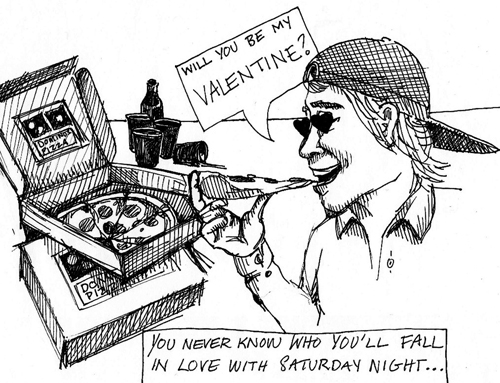 WILL YOU BE MY
VALENTINE?
DOMINO'S
PIZZA
YOU NEVER KNOW WHO YOU'LL FALL
IN LOVE WITH SATURDAY NIGHT...